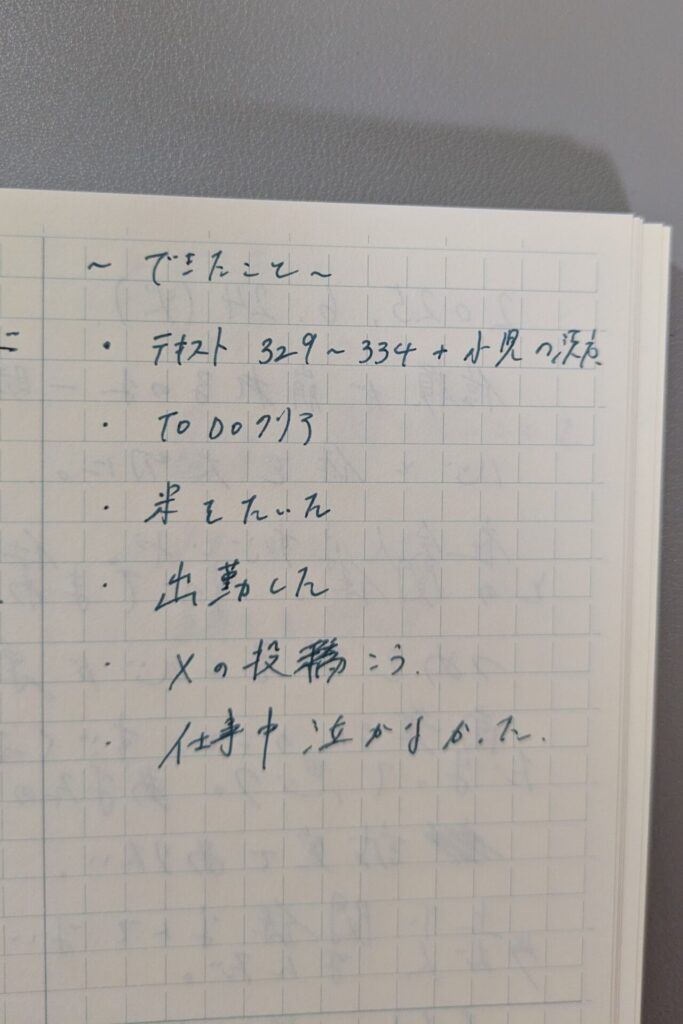 ~ できたこと ~
に
・ テキスト 329~334 + 小児の
・ TO DO クリア
・ 米をたいた
・ 出勤した
・ Xの投稿こう.
・ 仕事中 泣かなかった.